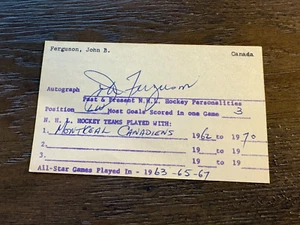 Ferguson, John B. Canada
Autograph John Ferguson
Past & Present N.H.L. Hockey Personalities
Position LW Most Goals Scored in one Game 3
N. H. L. HOCKEY TEAMS PLAYED WITH:
1. MONTREAL CANADIENS 1962 to 1970
2. 19 to 19
3. 19 to 19
All-Star Games Played In - 1963 -65-67